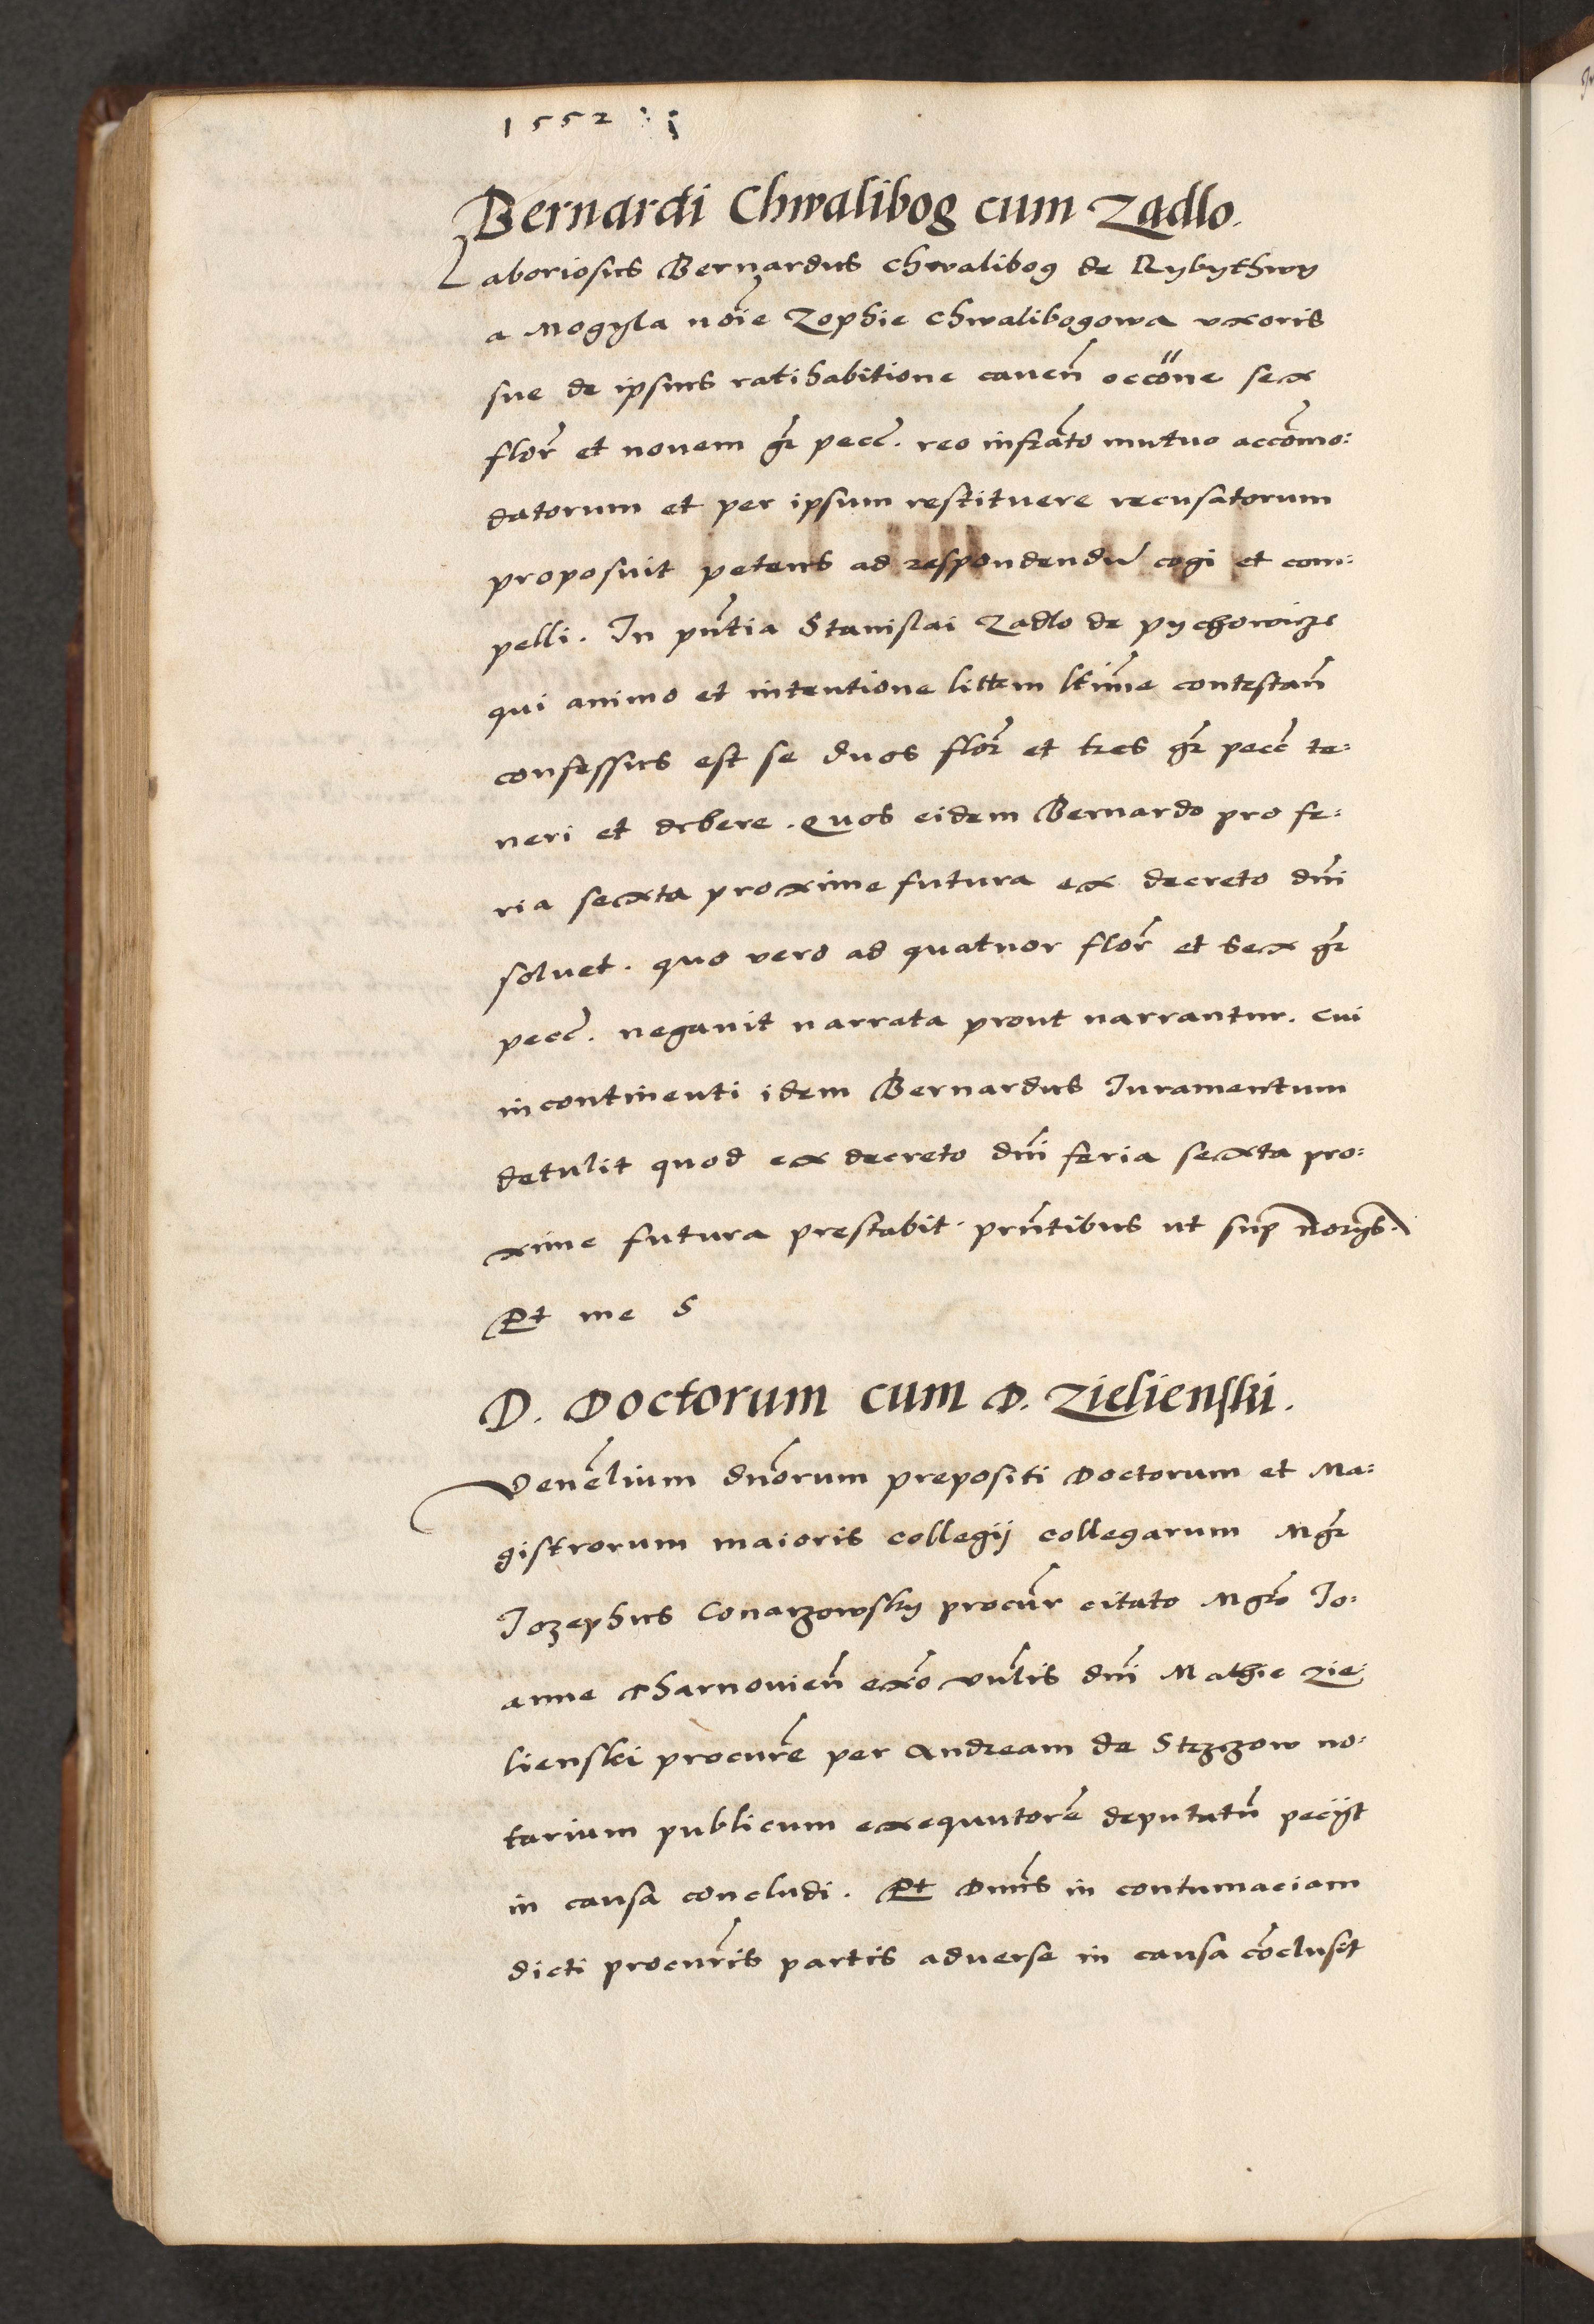 1552
Bernardi Chwalibog cum Zadlo.
Laboriosus Bernardus Chwalibog de Rybythwy
a Mogyla noïe Zophie Chwalibogowa vxoris
sue de ipsius ratihabitione caueñ occöne sex
flor̃ et nouem gr̃ pecc̃. reo infrãto mutuo accõmo:
datorum et per ipsum restituere recusatorum
proposuit petens ad respondendũ cogi et com:
pelli. In pñtia Stanislai Zadlo de Pychowicze
qui animo et intentione littem ltĩme contestañ
confessus est se duos flor̃ et tres gr̃ pecc̃ te:
neri et debere. Quos eidem Bernardo pro fe:
ria sexta proxime futura ex decreto dñi
soluet. quo vero ad quatuor flor̃ et Sex gr̃
pecc̃. negauit narrata prout narrantur. cui
incontinenti idem Bernardus Iuramentum
detulit quod ex decreto dñi feria sexta pro:
xime futura prestabit. prñtibus ut sup norijs.
Et me S
D. Doctorum cum D. Zielienski.
Venẽlium dñorum prepositi Doctorum et Ma:
gistrorum maioris collegij collegarum Mgr̃
Iozephus Conarzowsky procur̃ citato Mgr̃o Io:
anne Tharnouieñ exr̃o vñlis dñi Mathie Zie:
lienski procurẽ per Andream de Strzzow no:
tarium publicum exequutorẽ deputatũ pecijt
in causa concludi. Et Dñus in contumaciam
dicti procurĩs partis aduerse in causa cõclusit